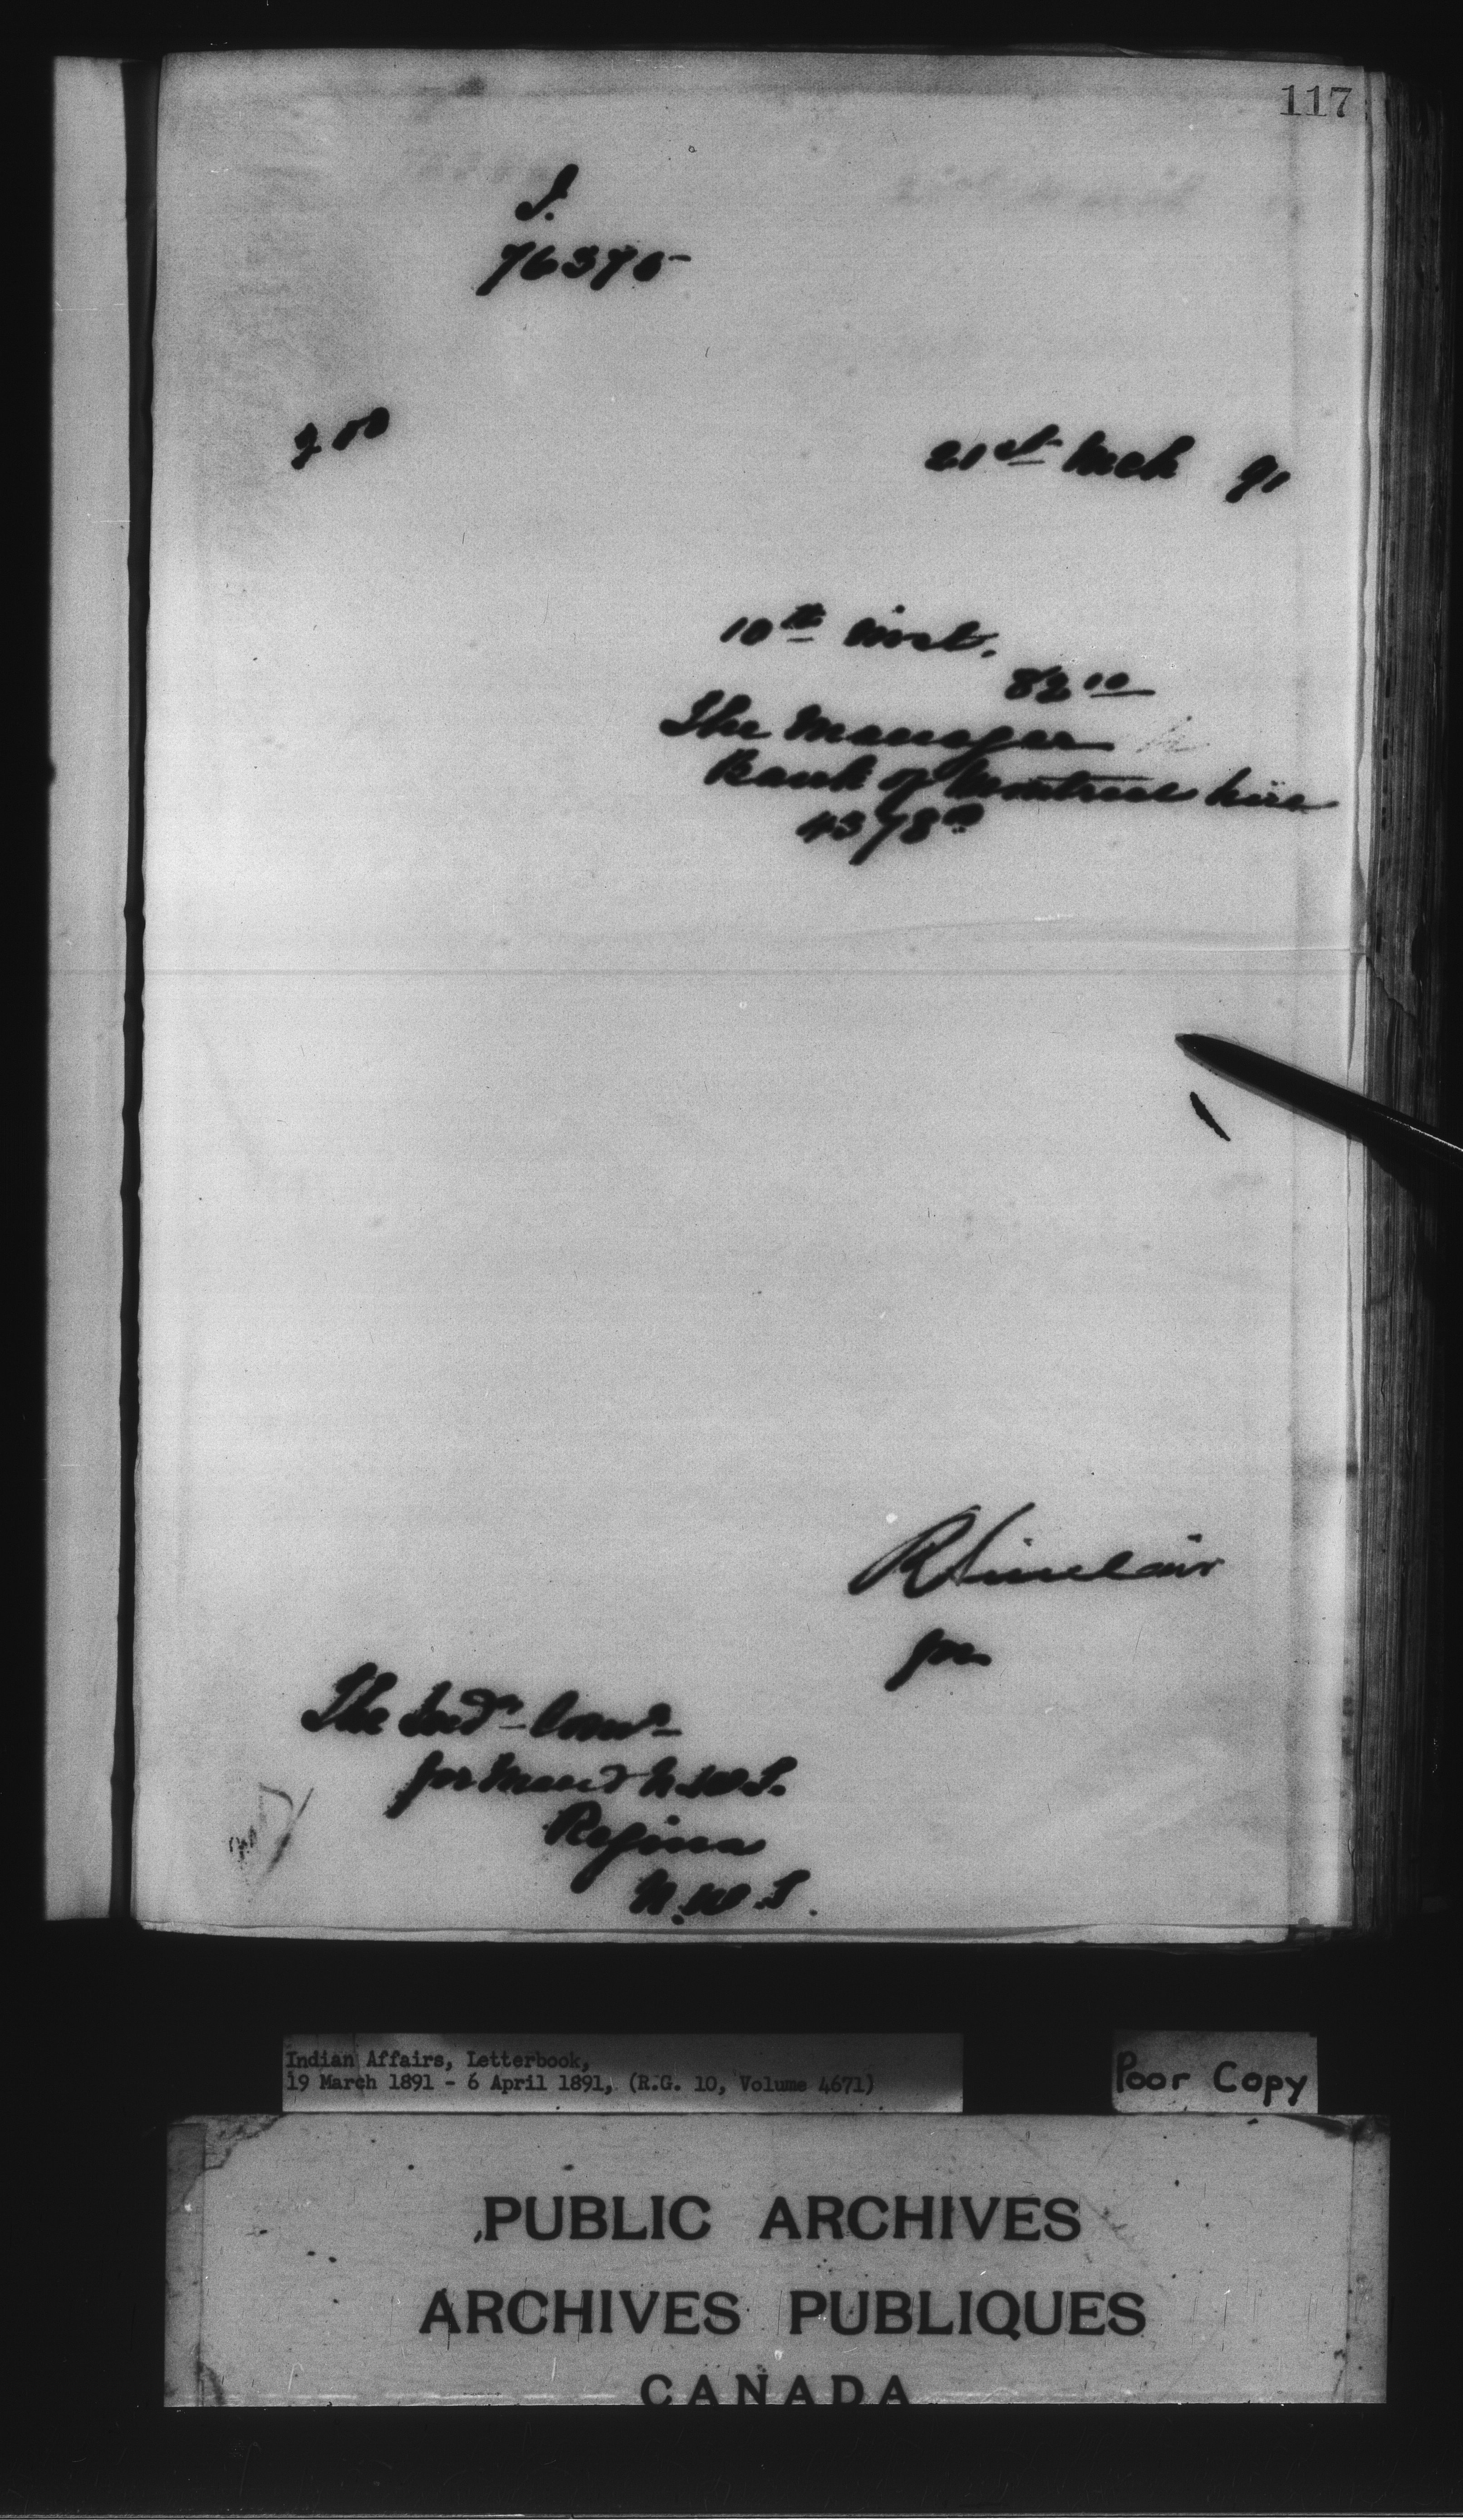 117
J.
76375
200
21st Mch 91
10th inst.
82 10
The Manager
Bank of Montreal here
4378
R Sinclair
for
The Indn Comr
for Man & N.W.T.
Regina
N.W.T.
Indian Affairs, Letterbook,
19 March 1891 - 6 April 1891, (R.G. 10, Volume 4671)
Poor Copy
PUBLIC ARCHIVES
ARCHIVES PUBLIQUES
CANADA